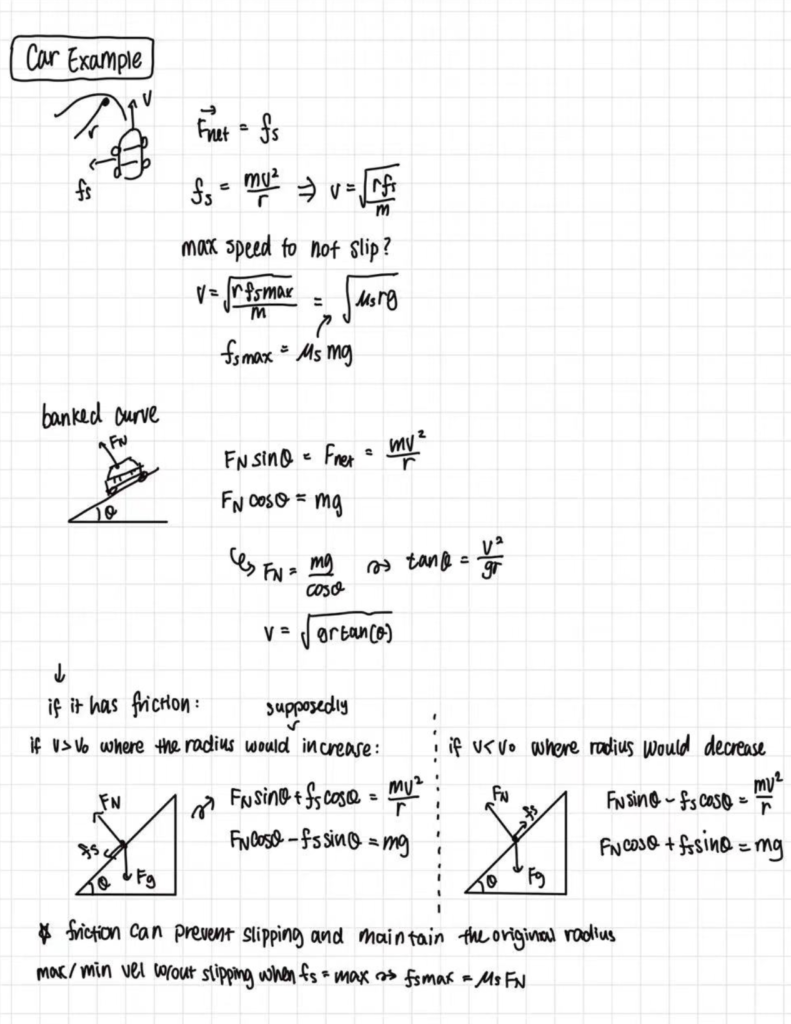 Car Example
v
r
fs
F⃗net = fs
fs = mv²/r ⇒ v = √(rfs/m)
max speed to not slip?
v = √(rfsmax/m) = √(μsrg)
fsmax = μsmg
banked curve
FN
θ
FN sinθ = Fnet = mv²/r
FN cosθ = mg
↳ FN = mg/cosθ ⇝ tanθ = v²/gr
v = √(grtan(θ))
↓
if it has friction:
supposedly
if v>v₀ where the radius would increase:
FN
fs
θ
Fg
FNsinθ + fscosθ = mv²/r
FNcosθ - fssinθ = mg
if v<v₀ where radius would decrease
FN
fs
θ
Fg
FNsinθ - fscosθ = mv²/r
FNcosθ + fssinθ = mg
* friction can prevent slipping and maintain the original radius
max/min vel w/out slipping when fs = max ⇝ fsmax = μsFN